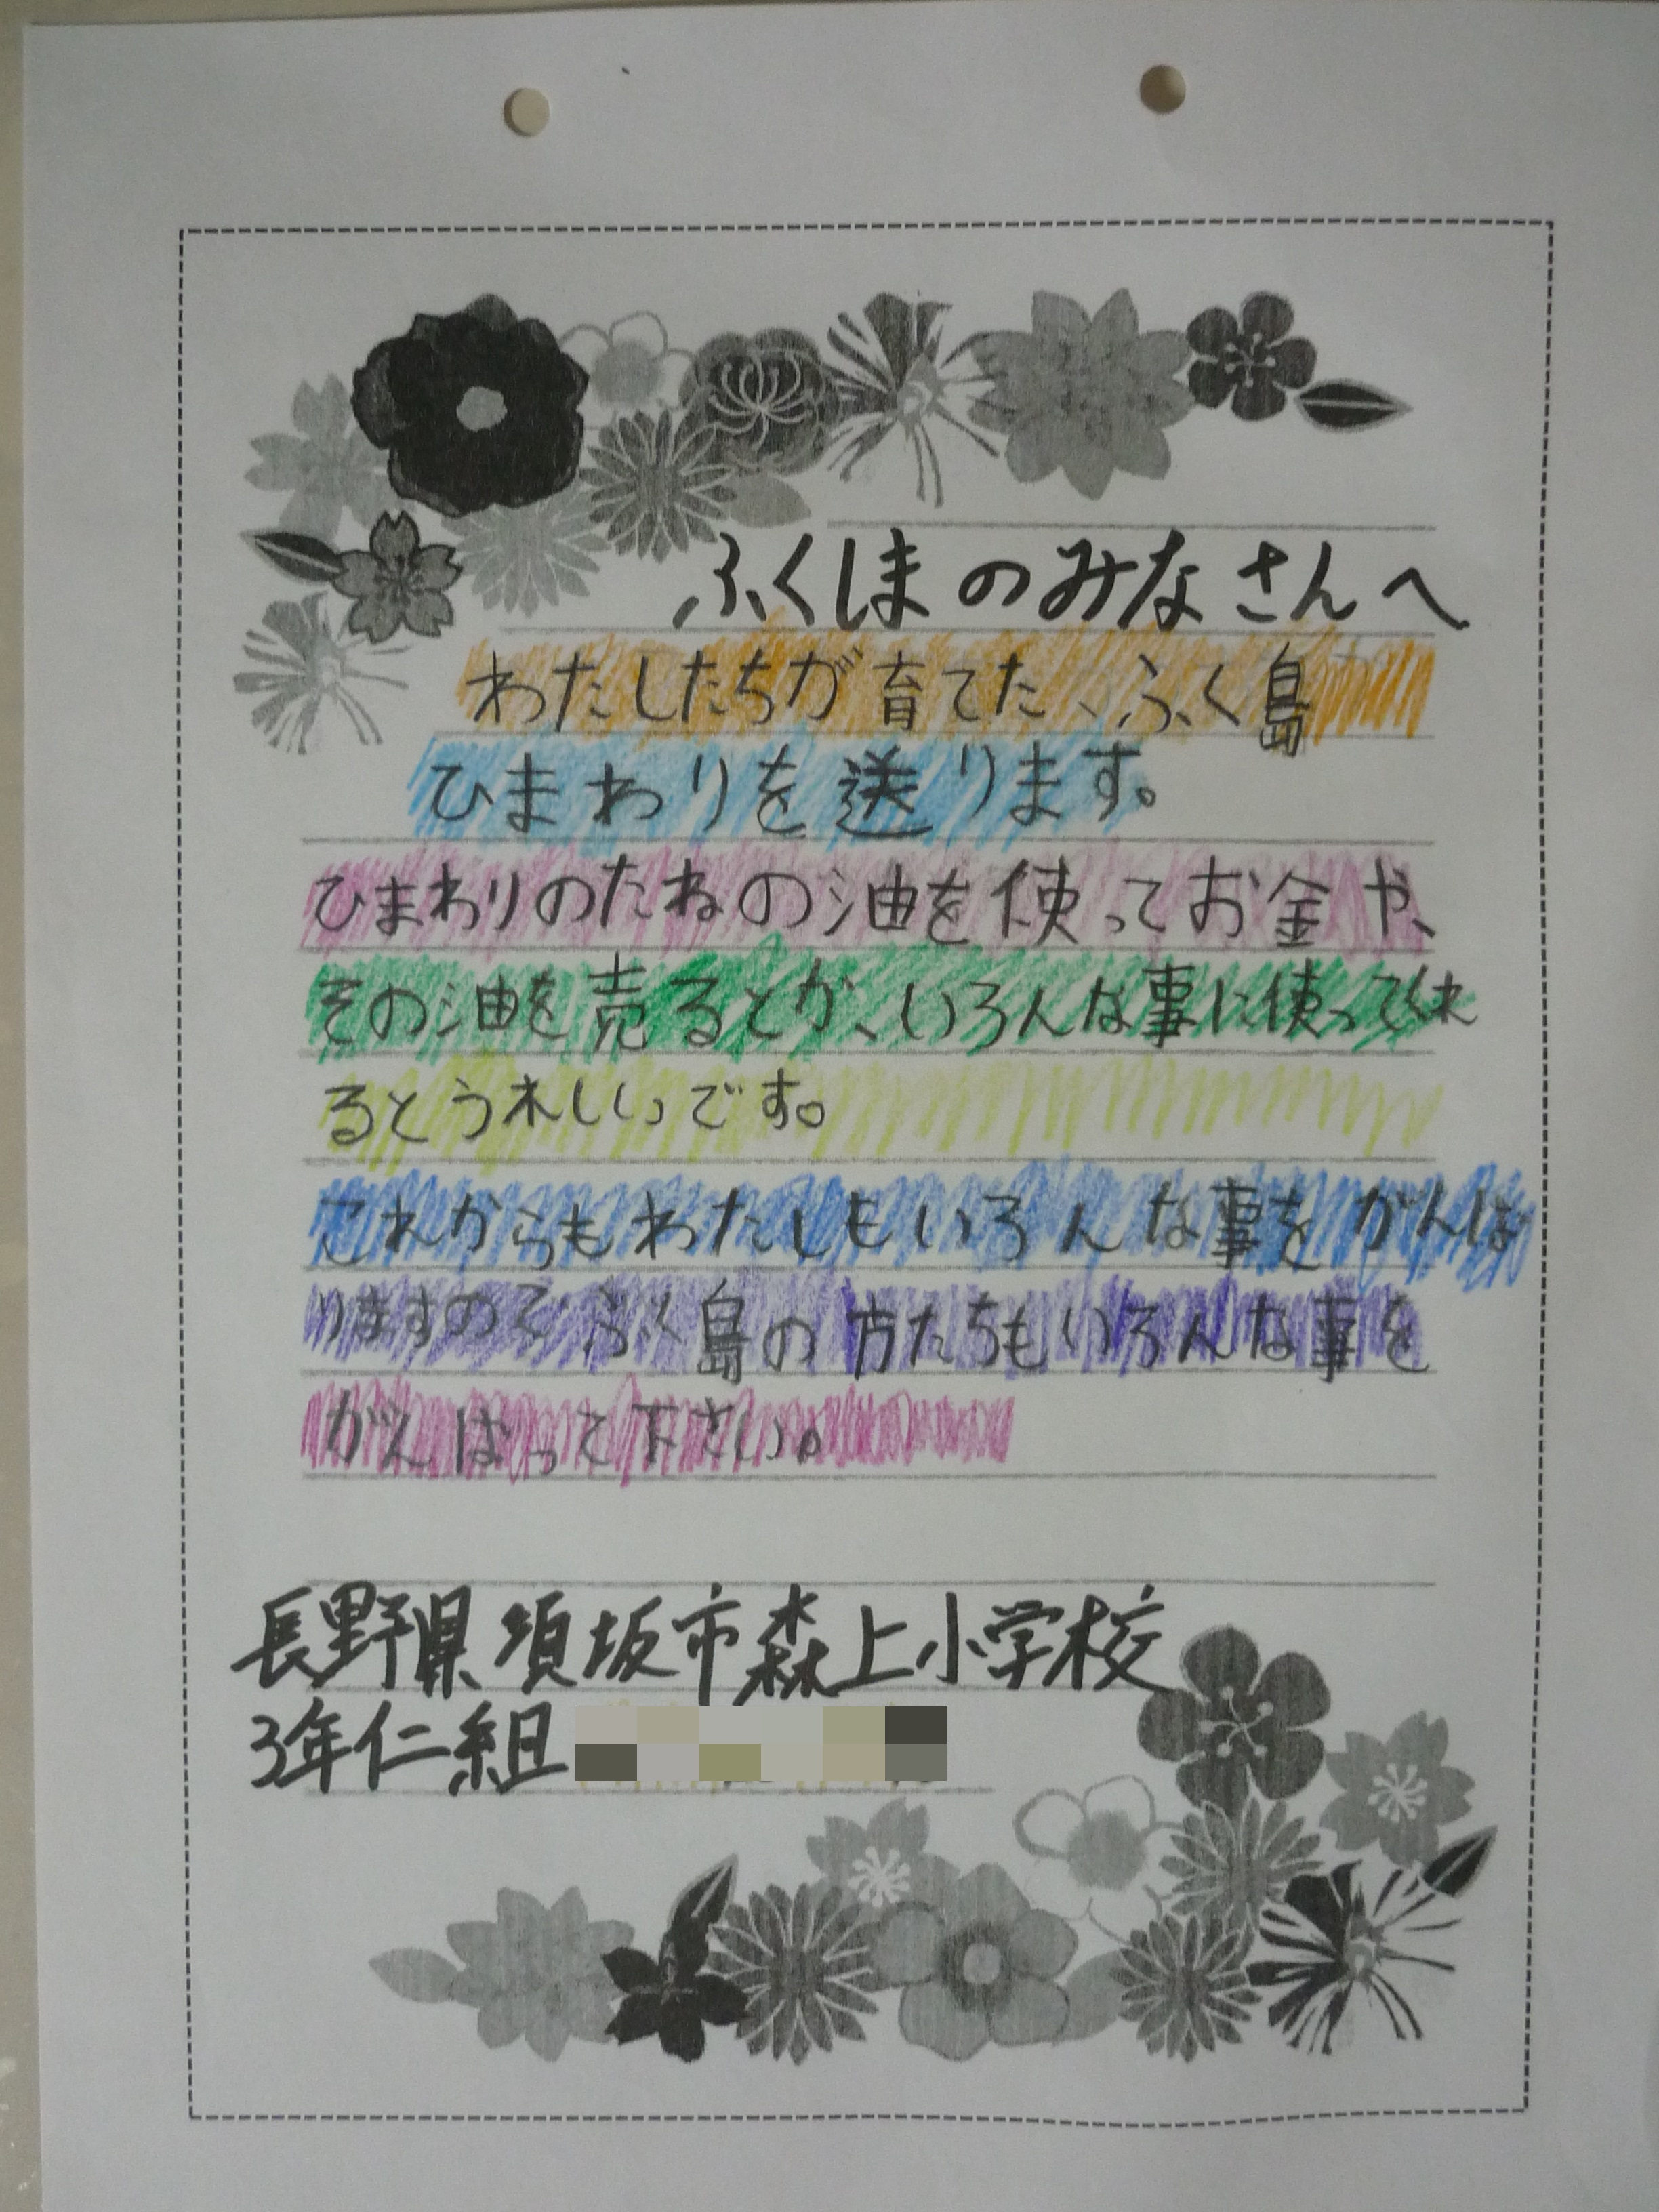 ふくしまのみなさんへ
わたしたちが育てた、ふく島
ひまわりを送ります。
ひまわりのたねの油を使ってお金や、
その油を売るとか、いろんな事に使ってくれ
るとうれしいです。
これからもわたしもいろんな事をがんば
りますのでふく島の方たちもいろんな事を
がんばって下さい。
長野県須坂市森上小学校
3年仁組